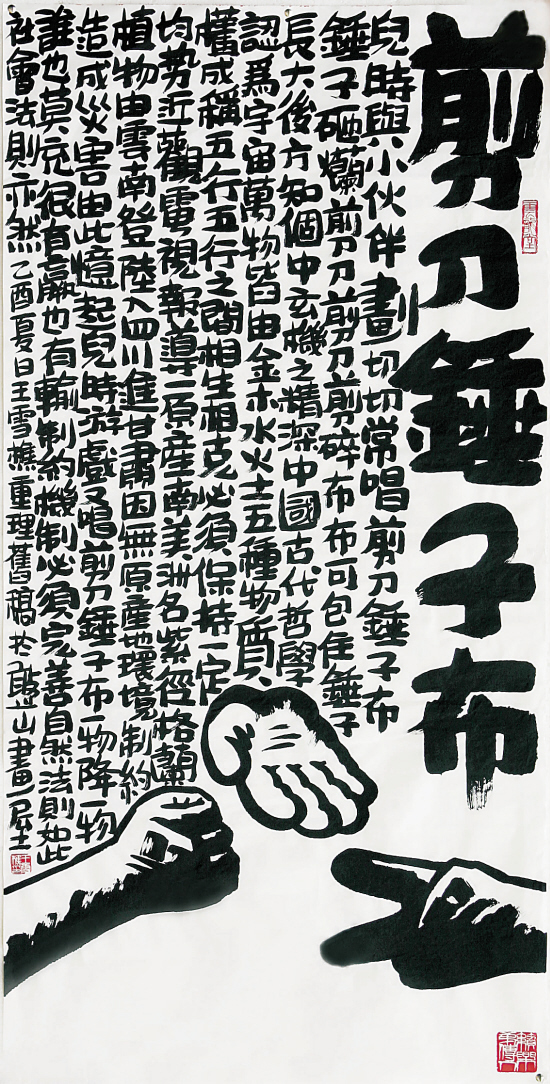 剪刀錘子布
兒時與小伙伴劃切切常唱剪刀錘子布
錘子砸爛剪刀刀剪刀剪碎布布可包住錘子
長大後方知個中玄機之精深中國古代哲學
認爲宇宙萬物皆由金木水火土五種物質
構成稱五行五行之間相生相克必須保持一定
均势近觀電視報導一原產南美洲名紫徑格蘭
植物由雲南登陸入四川進甘肅因無原產地環境制約
造成災害由此憶起兒時游戲又唱剪刀錘子布一物降一物
誰也莫充很有贏也有輸制約機制必須完善自然法則如此
社會法則亦然乙酉夏日王雪樵重理舊稿於盤山畫居士